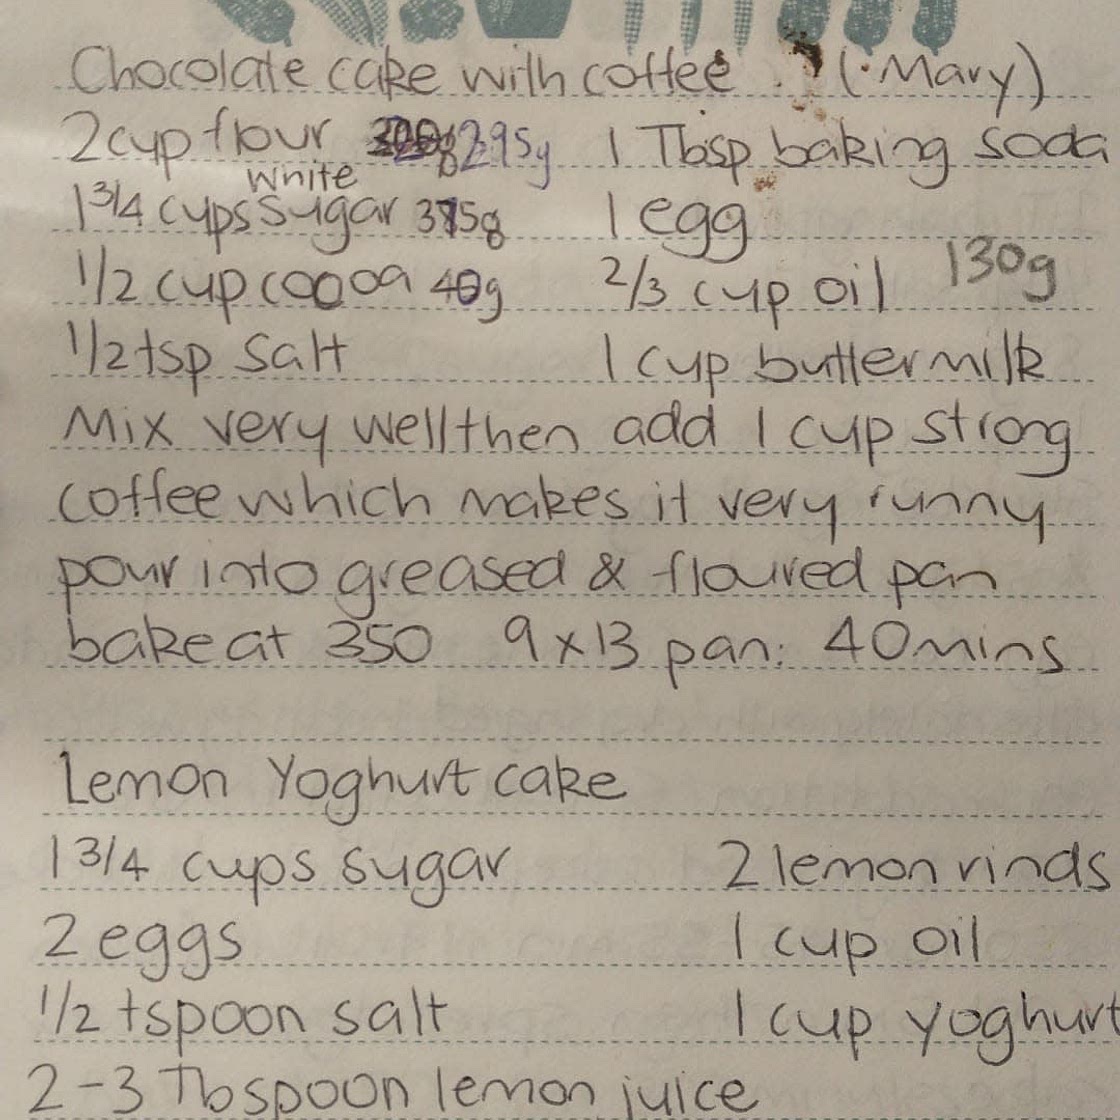 Chocolate cake with coffee (Mary)
2 cup flour 295g 1 Tbsp baking soda
White
1 3/4 cups sugar 375g 1 egg
1/2 cup cocoa 40g 2/3 cup oil 130g
1/2 tsp salt 1 cup buttermilk
Mix very well then add 1 cup strong
coffee which makes it very runny
pour into greased & floured pan
bake at 350 9 x 13 pan: 40 mins
Lemon Yoghurt cake
1 3/4 cups sugar 2 lemon rinds
2 eggs 1 cup oil
1/2 tspoon salt 1 cup yoghurt
2-3 Tbspoon lemon juice